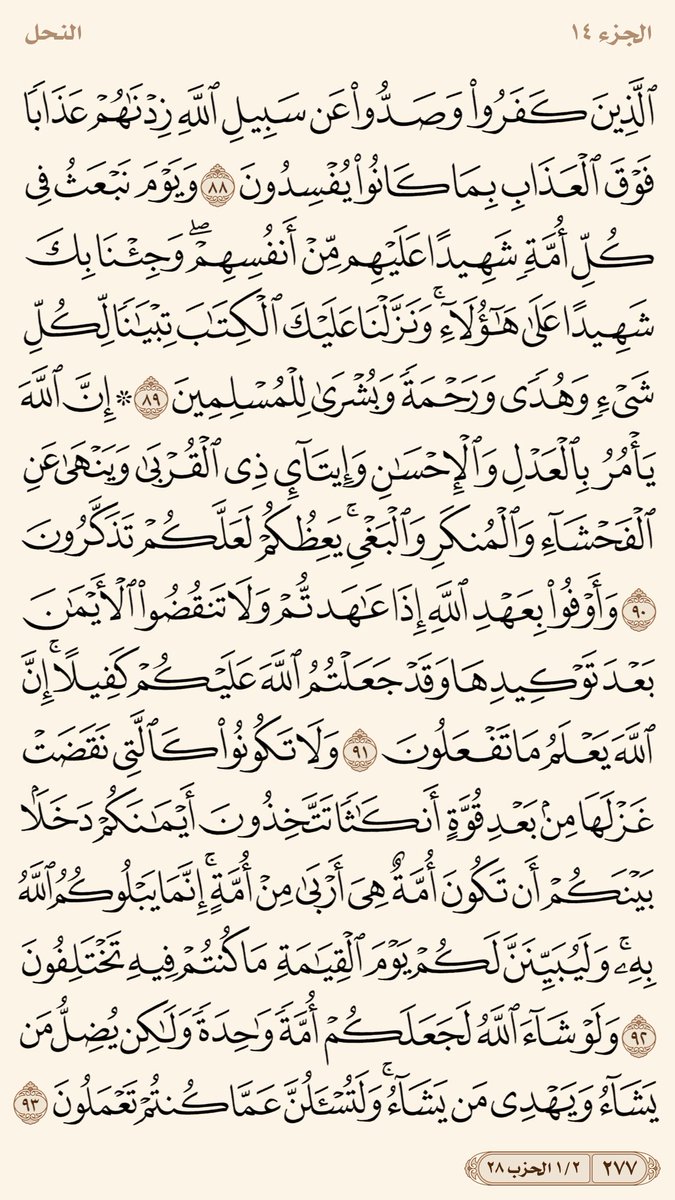 الجزء ١٤
النحل
ٱلَّذِينَ كَفَرُواْ وَصَدُّواْ عَن سَبِيلِ ٱللَّهِ زِدۡنَٰهُمۡ عَذَابٗا
فَوۡقَ ٱلۡعَذَابِ بِمَا كَانُواْ يُفۡسِدُونَ ٨٨ وَيَوۡمَ نَبۡعَثُ فِي
كُلِّ أُمَّةٖ شَهِيدًا عَلَيۡهِم مِّنۡ أَنفُسِهِمۡۖ وَجِئۡنَا بِكَ
شَهِيدًا عَلَىٰ هَٰٓؤُلَآءِۚ وَنَزَّلۡنَا عَلَيۡكَ ٱلۡكِتَٰبَ تِبۡيَٰنٗا لِّكُلِّ
شَيۡءٖ وَهُدٗى وَرَحۡمَةٗ وَبُشۡرَىٰ لِلۡمُسۡلِمِينَ ٨٩ ۞ إِنَّ ٱللَّهَ
يَأۡمُرُ بِٱلۡعَدۡلِ وَٱلۡإِحۡسَٰنِ وَإِيتَآيِٕ ذِي ٱلۡقُرۡبَىٰ وَيَنۡهَىٰ عَنِ
ٱلۡفَحۡشَآءِ وَٱلۡمُنكَرِ وَٱلۡبَغۡيِۚ يَعِظُكُمۡ لَعَلَّكُمۡ تَذَكَّرُونَ
٩٠ وَأَوۡفُواْ بِعَهۡدِ ٱللَّهِ إِذَا عَٰهَدتُّمۡ وَلَا تَنقُضُواْ ٱلۡأَيۡمَٰنَ
بَعۡدَ تَوۡكِيدِهَا وَقَدۡ جَعَلۡتُمُ ٱللَّهَ عَلَيۡكُمۡ كَفِيلًاۚ إِنَّ
ٱللَّهَ يَعۡلَمُ مَا تَفۡعَلُونَ ٩١ وَلَا تَكُونُواْ كَٱلَّتِي نَقَضَتۡ
غَزۡلَهَا مِنۢ بَعۡدِ قُوَّةٍ أَنكَٰثٗا تَتَّخِذُونَ أَيۡمَٰنَكُمۡ دَخَلَۢا
بَيۡنَكُمۡ أَن تَكُونَ أُمَّةٌ هِيَ أَرۡبَىٰ مِنۡ أُمَّةٍۚ إِنَّمَا يَبۡلُوكُمُ ٱللَّهُ
بِهِۦۚ وَلَيُبَيِّنَنَّ لَكُمۡ يَوۡمَ ٱلۡقِيَٰمَةِ مَا كُنتُمۡ فِيهِ تَخۡتَلِفُونَ
٩٢ وَلَوۡ شَآءَ ٱللَّهُ لَجَعَلَكُمۡ أُمَّةٗ وَٰحِدَةٗ وَلَٰكِن يُضِلُّ مَن
يَشَآءُ وَيَهۡدِي مَن يَشَآءُۚ وَلَتُسۡـَٔلُنَّ عَمَّا كُنتُمۡ تَعۡمَلُونَ ٩٣
٢٧٧ ١/٢ الحزب ٢٨